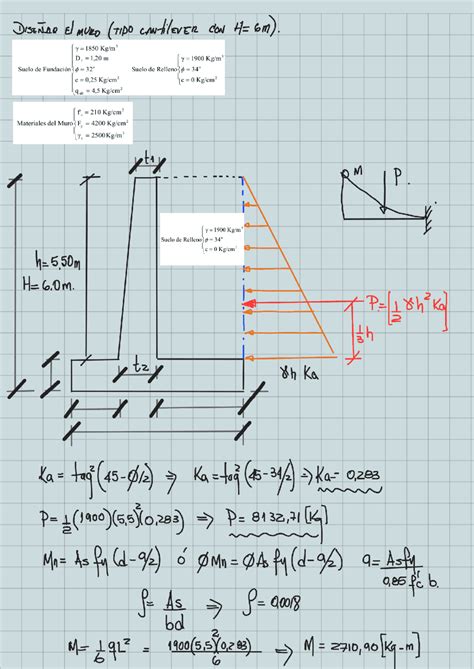 DISEÑAR EL MURO (TIPO CANTILEVER CON H= 6m).
Suelo de Fundación { γ = 1850 Kg/m³
Df = 1,20 m
ϕ = 32°
c = 0,25 Kg/cm²
q adm = 4,5 Kg/cm²
Suelo de Relleno { γ = 1900 Kg/m³
ϕ = 34°
c = 0 Kg/cm²
Materiales del Muro { f'c = 210 Kg/cm²
Fy = 4200 Kg/cm²
γc = 2500 Kg/m³
t1
M
P.
Suelo de Relleno { γ = 1900 Kg/m³
ϕ = 34°
c = 0 Kg/cm²
h= 5,50m
H= 6.0m.
P=[1/2 γh² Ka]
1/3 h
t2
γh Ka
Ka = tag²(45-ϕ/2) ⇒ Ka= tag²(45-34/2) ⇒ Ka= 0,283
P= 1/2 (1900)(5,5)²(0,283) ⇒ P= 8132,71 [Kg]
Mn= As fy (d-a/2) ó ϕMn= ϕAs fy (d-a/2) a= Asfy / 0,85 f'c b.
ρ= As/bd ⇒ ρ=0,0018
M= 1/6 qL² = 1900(5,5)²(0,283) / 6 ⇒ M= 2710,90 [Kg-m]